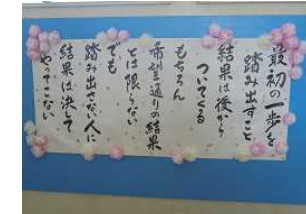 最初の一歩を
踏み出すこと
結果は後から
ついてくる
もちろん
希望通りの結果
とは限らない
でも
踏み出さない人に
結果は決して
やってこない